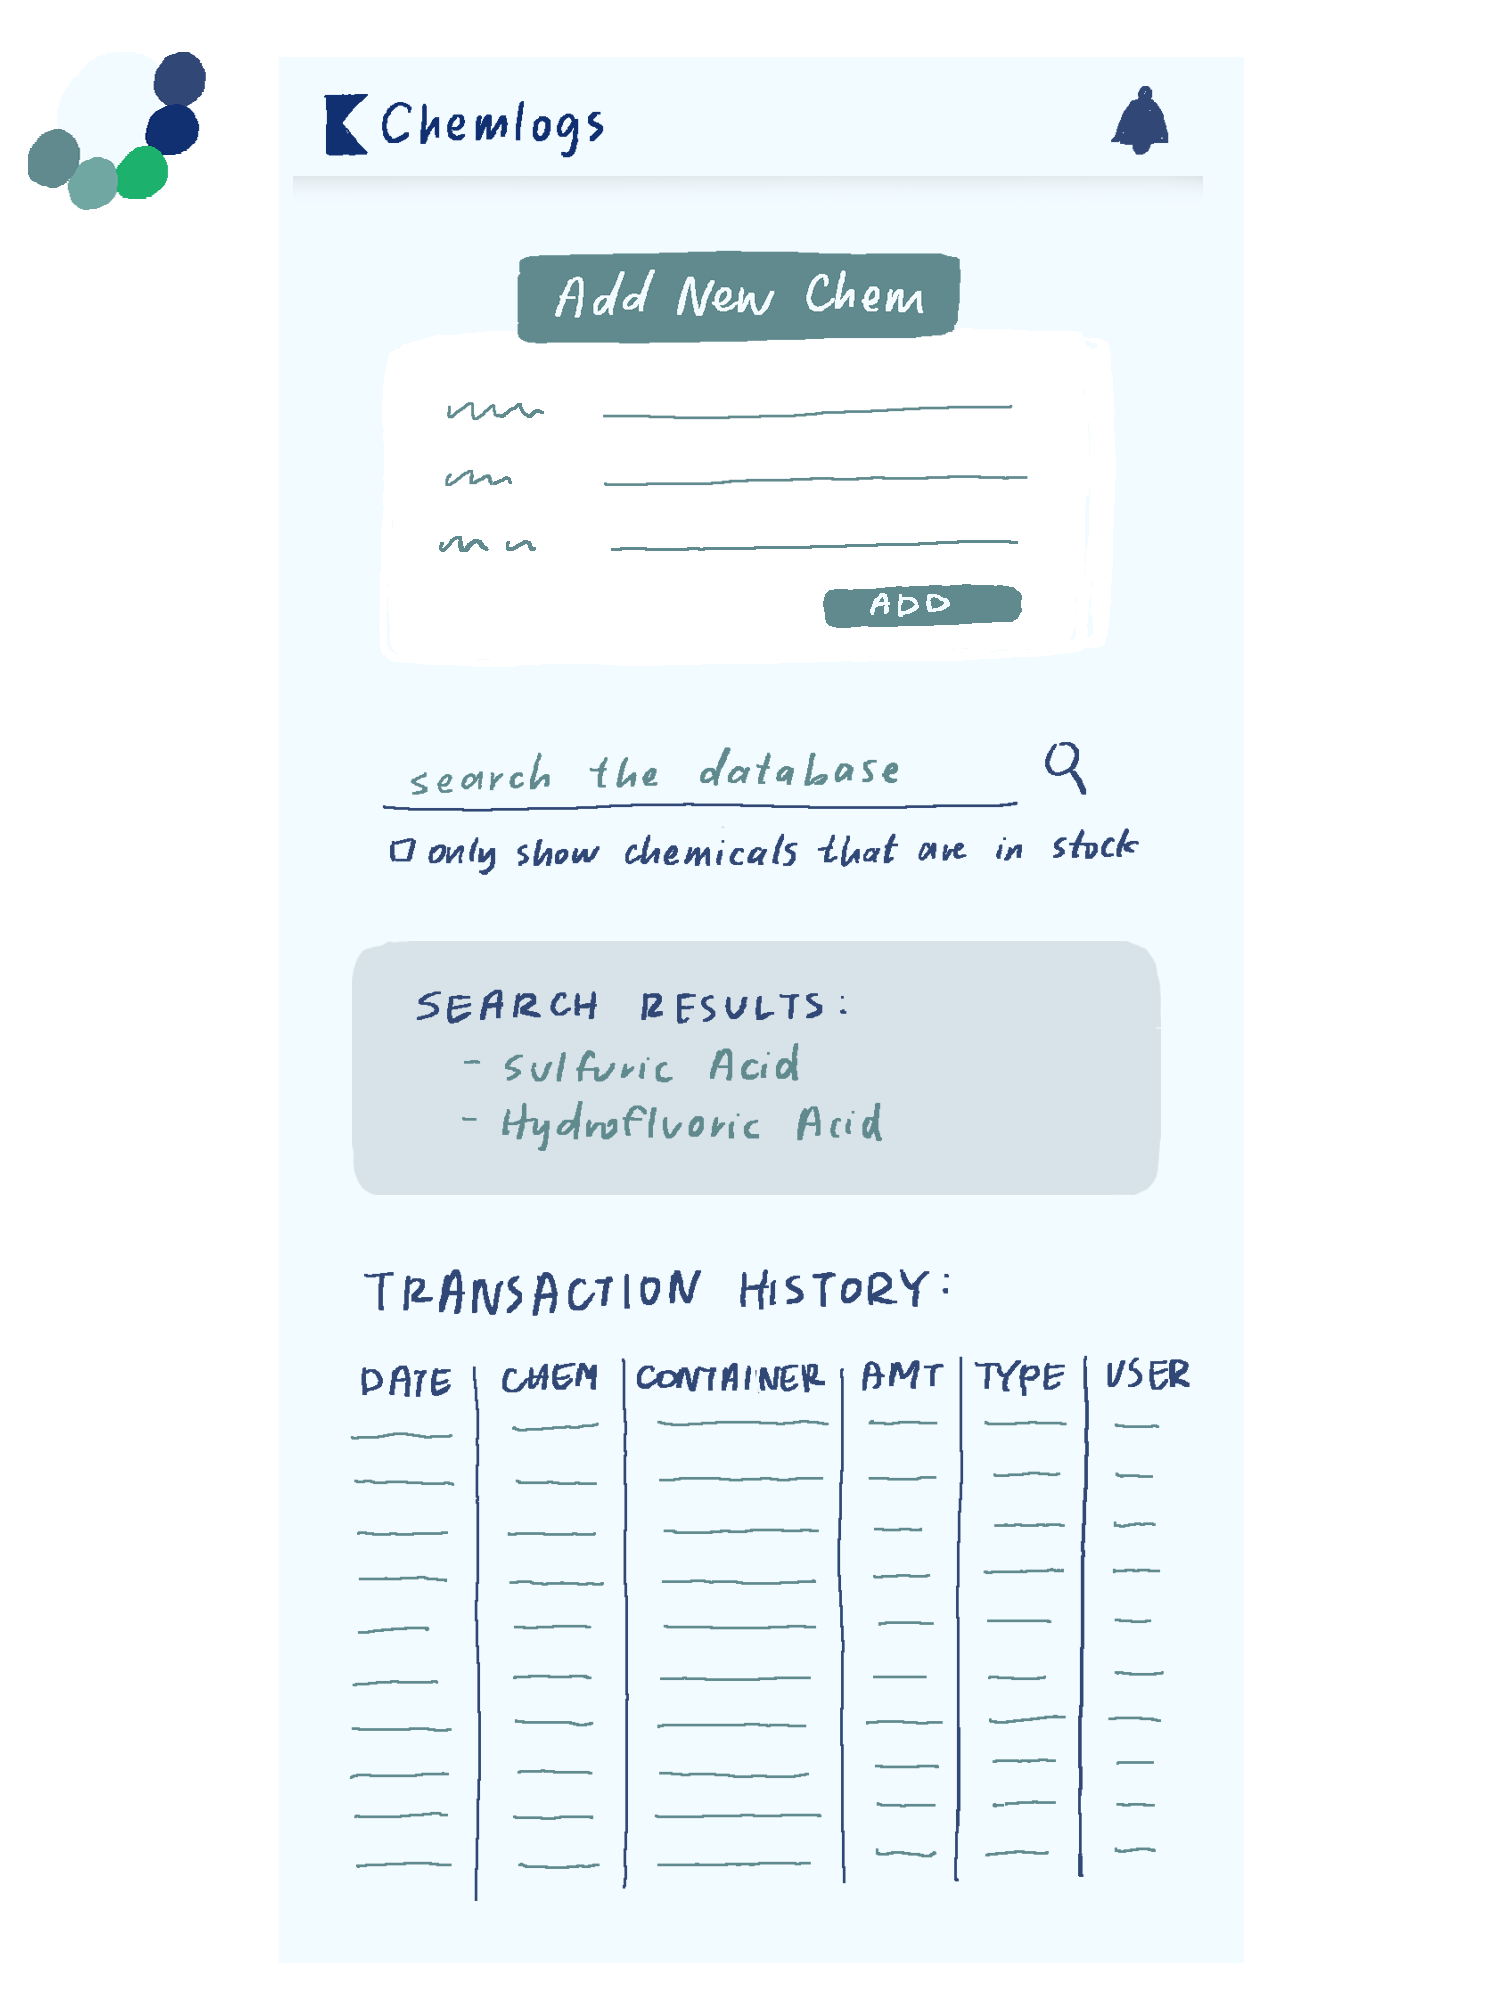 Chemlogs
Add New Chem
ADD
search the database
only show chemicals that are in stock
SEARCH RESULTS:
- Sulfuric Acid
- Hydrofluoric Acid
TRANSACTION HISTORY:
DATE CHEM CONTAINER AMT TYPE USER